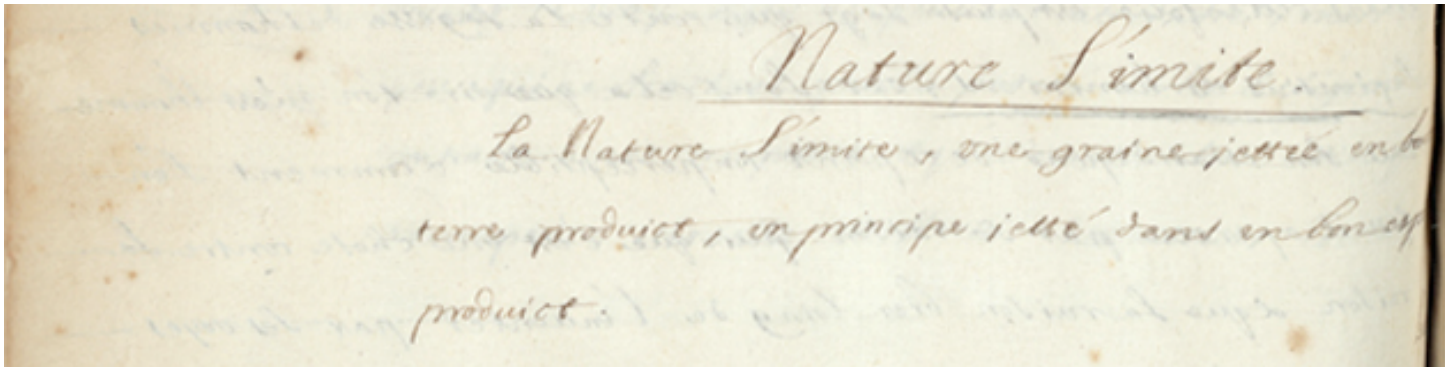 Nature S'imite
La Nature S'imite, une graine jettée en bo
terre produict, un principe jetté dans un bon esp
produict.